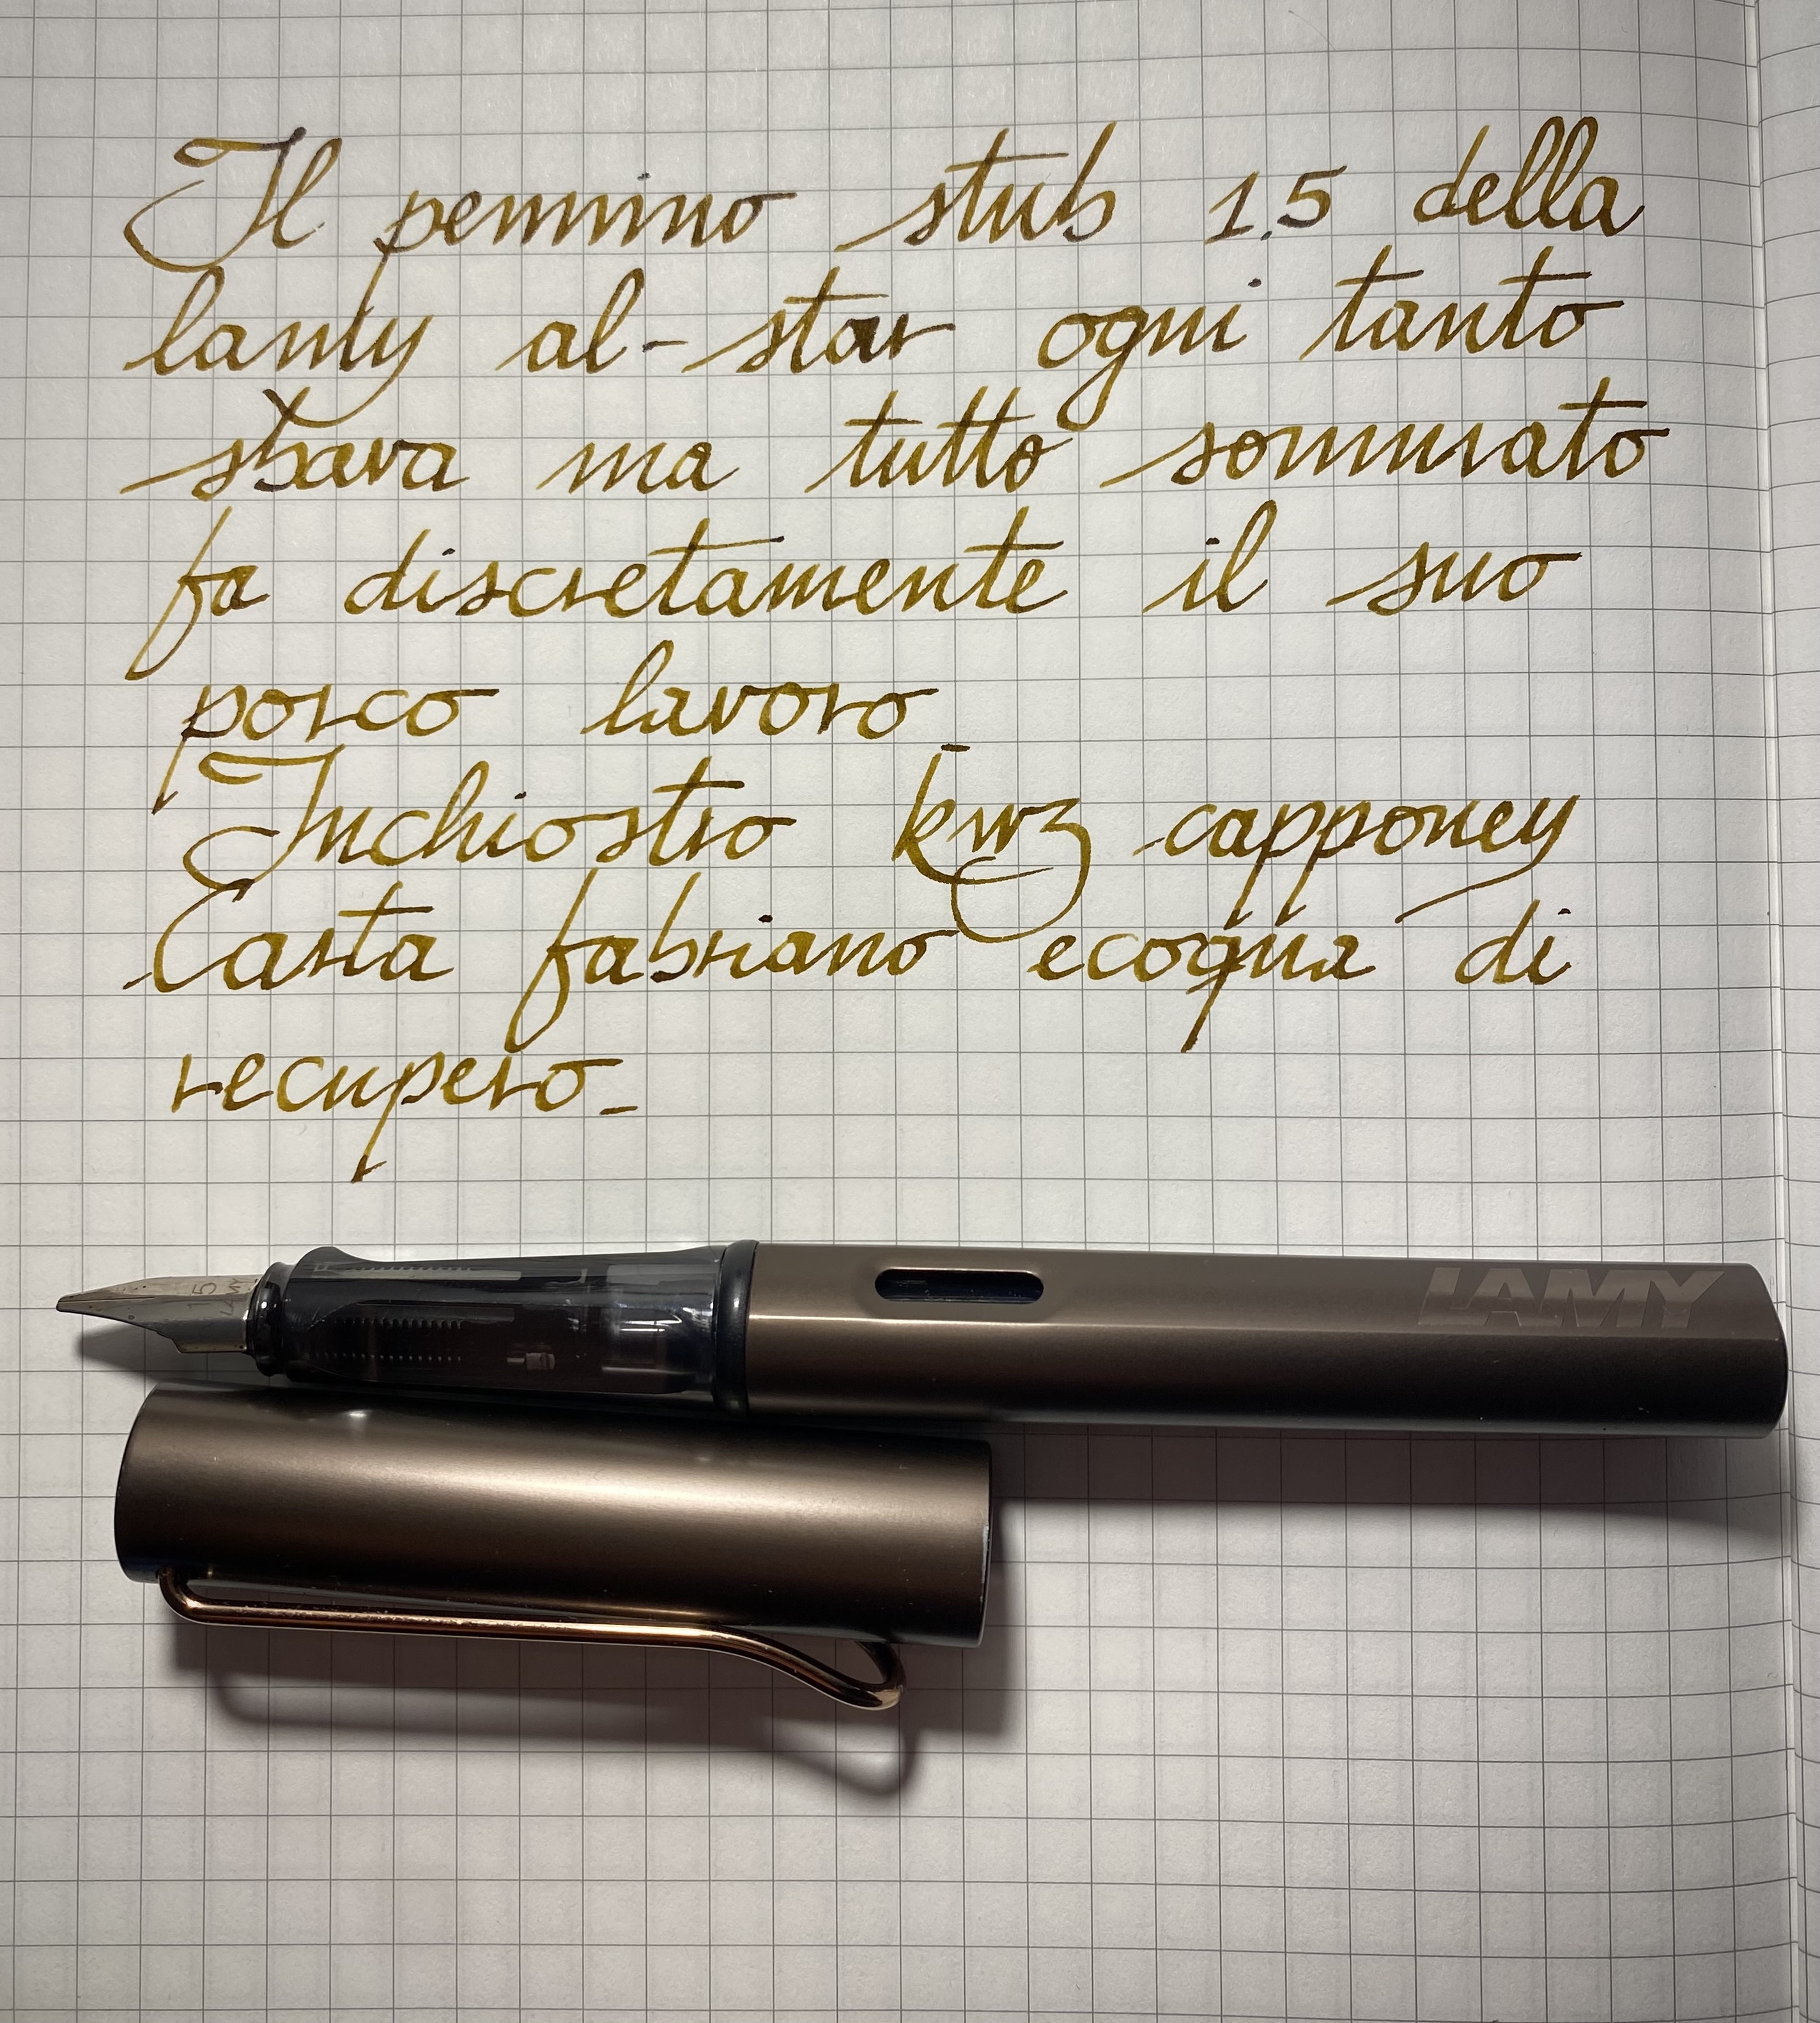 Il pennino stub 1.5 della
lamy al-star ogni tanto
sbava ma tutto sommato
fa discretamente il suo
porco lavoro_
Inchiostro kwz capponey
Carta fabriano ecoqua di
recupero_
1.5
LAMY
LAMY